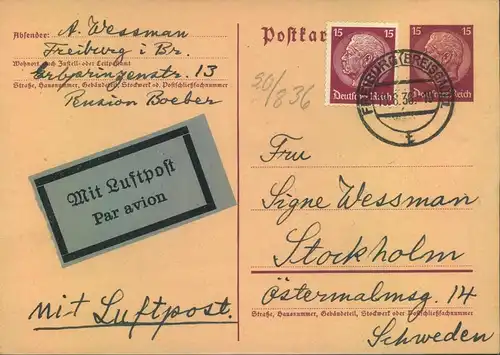 Absender: A. Wessman
Freiburg i Br.
Wohnort, auch Zustell- oder Leitpostamt
Erbprinzenstr. 13
Straße, Hausnummer, Gebäudeteil, Stockwerk od. Postschließfachnummer
Pension Boeber
Mit Luftpost
Par avion
mit Luftpost.
Postkar
15 15
Deutsches Reich
15 15
Deutsches Reich
FREIBURG (BREISGAU)
t
20/8 36
Fru
Signe Wessman
Stockholm
Östermalmsg. 14
Straße, Hausnummer, Gebäudeteil, Stockwerk oder Postschließfachnummer
Schweden